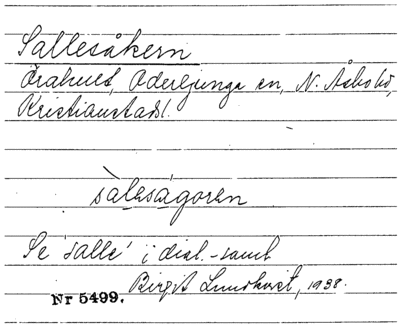 Sallesåkern
Örahult, Oderljunga sn, N. Åsbo hd,
Kristianstads l.
sàlesågoren
Se 'salle' i dial.-saml
Birgit Lundkvist, 1938.
Nr 5499.